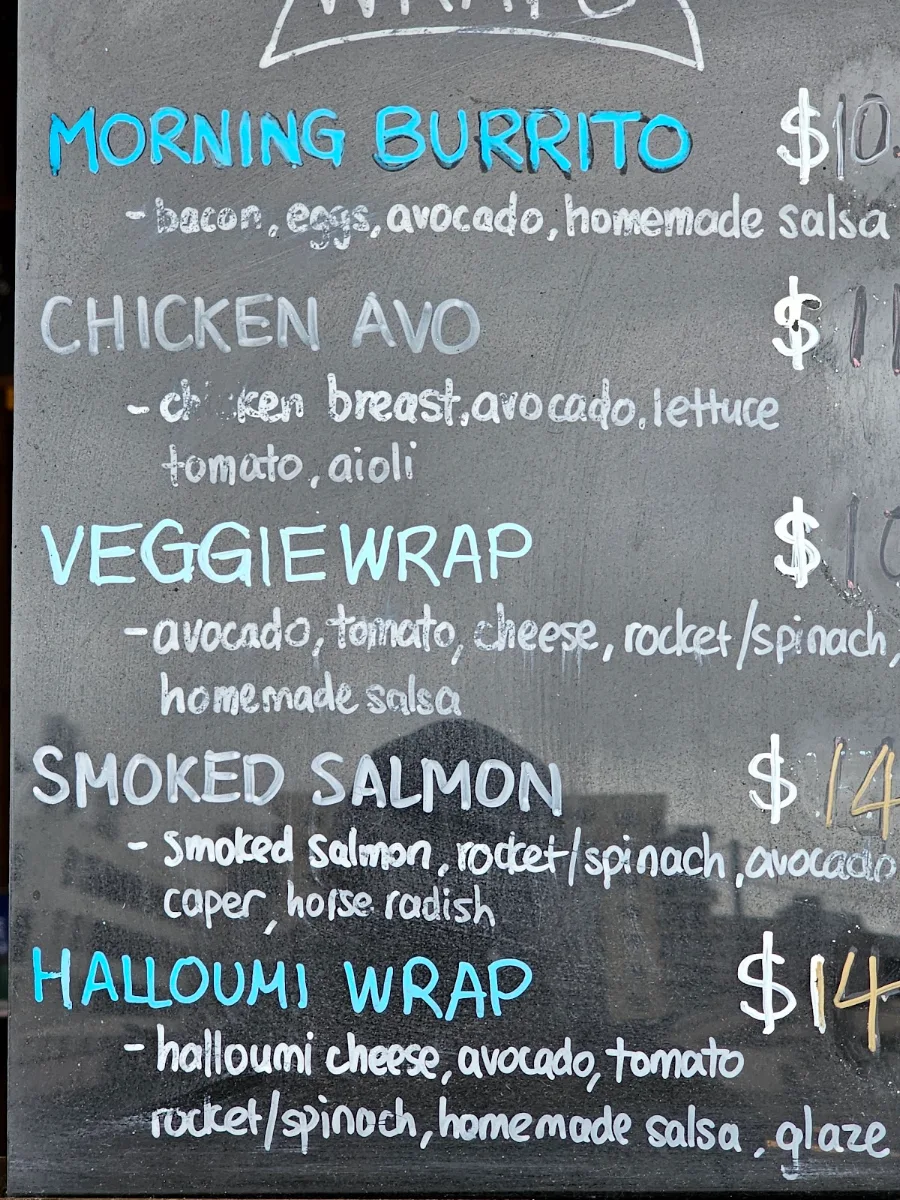 WRAPS
MORNING BURRITO $10.
-bacon, eggs, avocado, homemade salsa
CHICKEN AVO $11
-chicken breast, avocado, lettuce
tomato, aioli
VEGGIE WRAP $10
-avocado, tomato, cheese, rocket/spinach,
homemade salsa
SMOKED SALMON $14
- smoked salmon, rocket/spinach, avocado
caper, horse radish
HALLOUMI WRAP $14
- halloumi cheese, avocado, tomato
rocket/spinach, homemade salsa, glaze